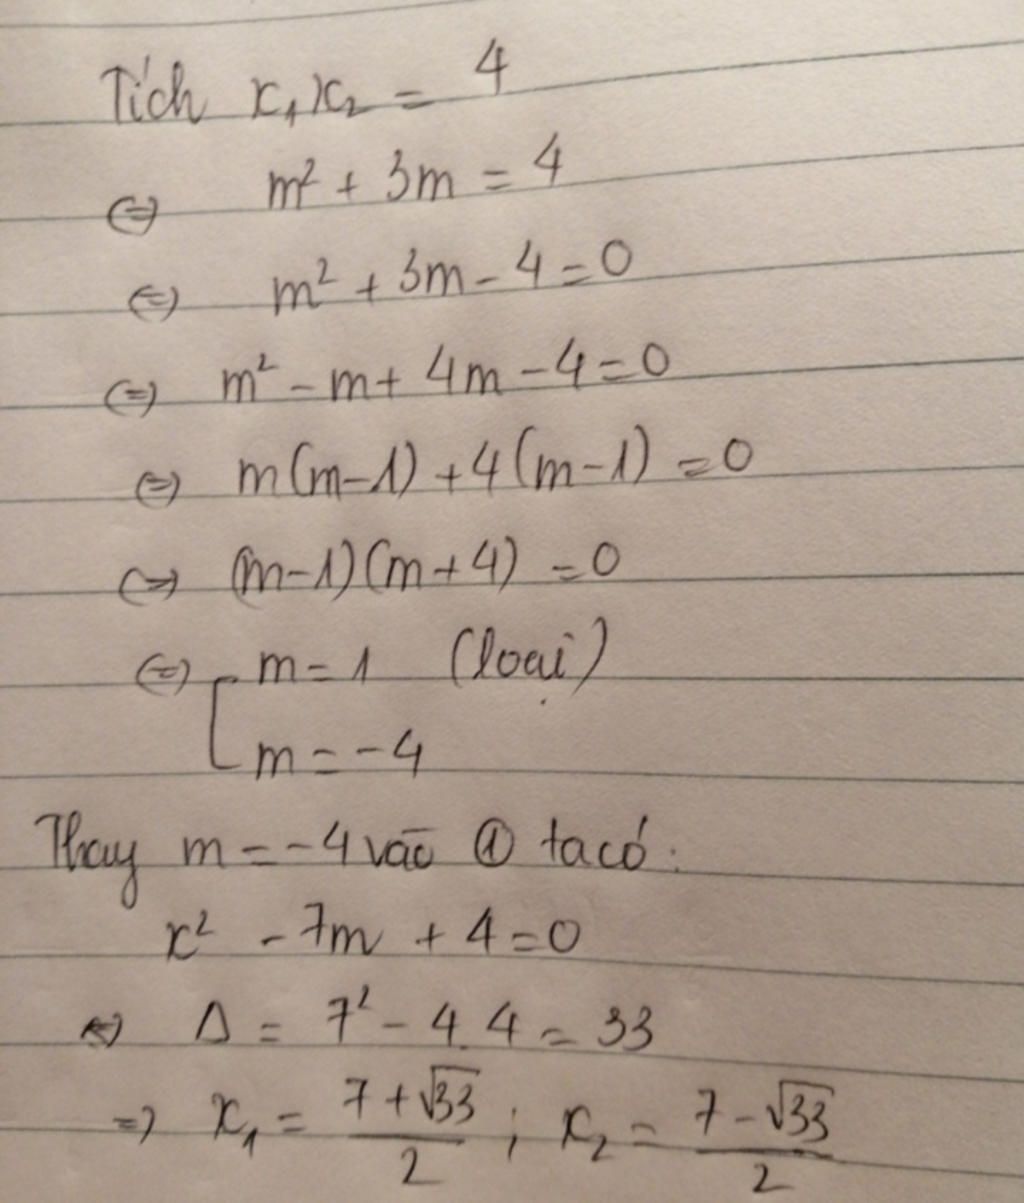 Tích x₁x₂ = 4
⇔ m² + 3m = 4
⇔ m² + 3m - 4 = 0
⇔ m² - m + 4m - 4 = 0
⇔ m(m-1) + 4(m-1) = 0
⇔ (m-1)(m+4) = 0
⇔ [ m = 1 (loại)
m = -4
Thay m = -4 vào ① ta có:
x² - 7m + 4 = 0
⇔ Δ = 7² - 4.4 = 33
⇒ x₁ = (7 + √33)/2 ; x₂ = (7 - √33)/2